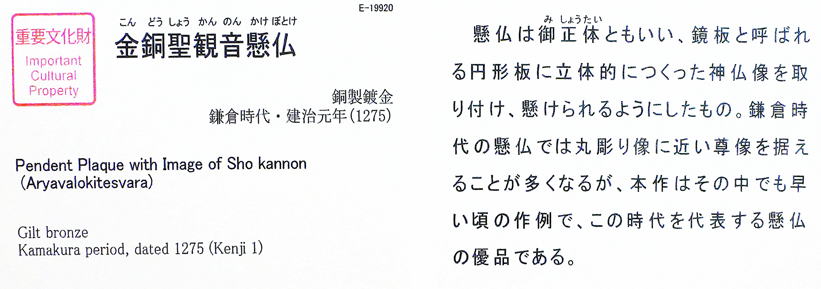 E-19920
重要文化財
Important
Cultural
Property
こん どう しょう かん のん かけ ぼとけ
金銅聖観音懸仏
銅製鍍金
鎌倉時代・建治元年(1275)
Pendent Plaque with Image of Sho kannon
(Aryavalokitesvara)
Gilt bronze
Kamakura period, dated 1275 (Kenji 1)
み しょうたい
懸仏は御正体ともいい、鏡板と呼ばれ
る円形板に立体的につくった神仏像を取
り付け、懸けられるようにしたもの。鎌倉時
代の懸仏では丸彫り像に近い尊像を据え
ることが多くなるが、本作はその中でも早
い頃の作例で、この時代を代表する懸仏
の優品である。